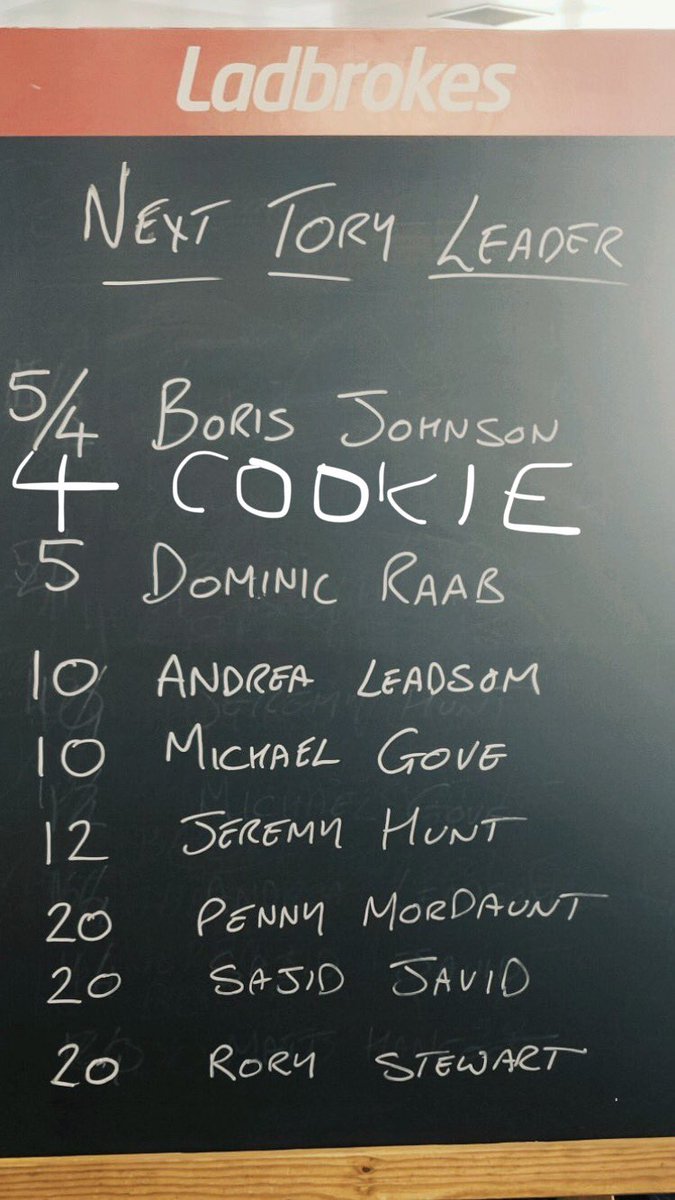 Ladbrokes
NEXT TORY LEADER
5/4 BORIS JOHNSON
4 COOKIE
5 DOMINIC RAAB
10 ANDREA LEADSOM
10 MICHAEL GOVE
12 JEREMY HUNT
20 PENNY MORDAUNT
20 SAJID JAVID
20 RORY STEWART